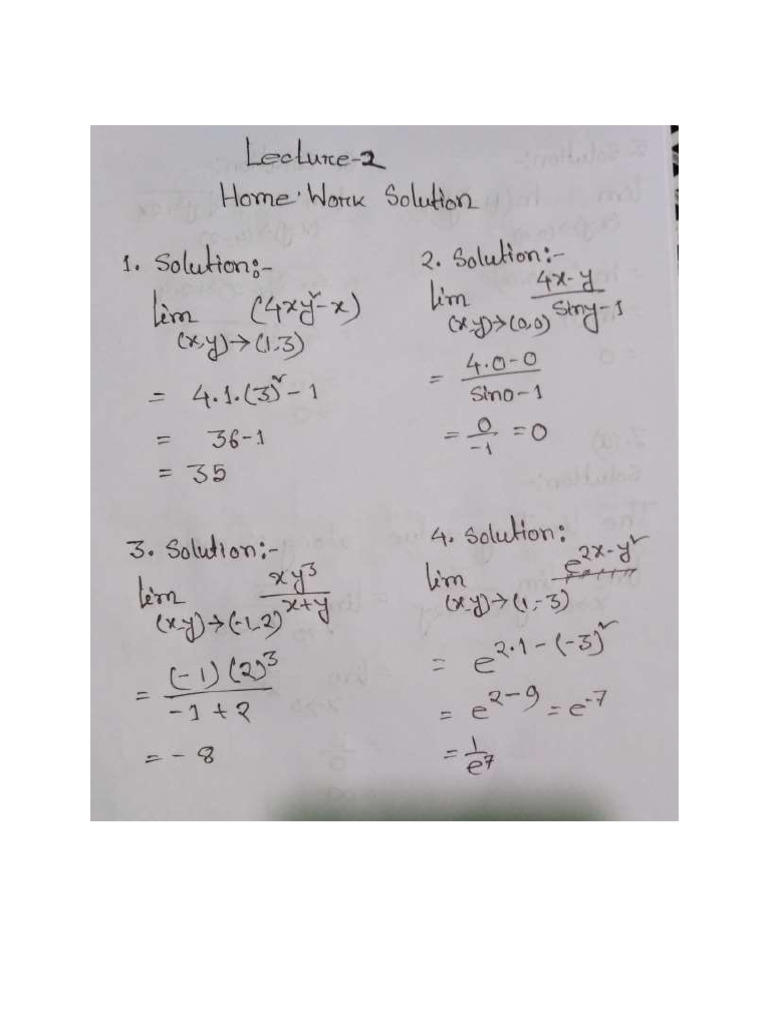 Lecture-2
Home Work Solution
1. Solution:-
lim (x,y)→(1,3) (4xy²-x)
= 4.1.(3)²-1
= 36-1
= 35
2. Solution:-
lim (x,y)→(0,0) (4x-y)/(siny-1)
= (4.0-0)/(sin0-1)
= 0/-1 = 0
3. Solution:-
lim (x,y)→(-1,2) xy³/(x+y)
= (-1)(2)³/(-1+2)
= -8
4. Solution:
lim (x,y)→(1,-3) e^(2x-y²)
= e^(2.1-(-3)²)
= e^(2-9) = e^-7
= 1/e^7